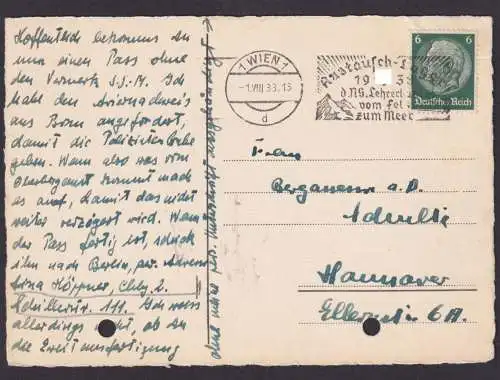 Hoffentlich bekommen wir
nun einen Pass ohne
den Vermerk J.J.M. Ich
habe den Ariernachweis
aus Bonn angefordert,
damit die Polizei
geben. Wenn also was vom
Oberbergamt kommt mach
es auf, damit das nicht
weiter verzögert wird. Wenn
der Pass fertig ist, schick
ihn nach Berlin, per Adresse
Höppner, Chbg. 2.
Schillerstr. 111. Ich weiss
allerdings nicht, ob
die Zweitausfertigung
ohne meine per. Unterschrift ausgehändigt
1 WIEN 1
-1.VIII 38.13
d
Austausch-
19 38
d. NS. Lehrerb
vom Fel
zum Meer
6 6
Deutsches Reich
Frau
Bergassessor a. D.
Hannover
Ellernstr. 6A.